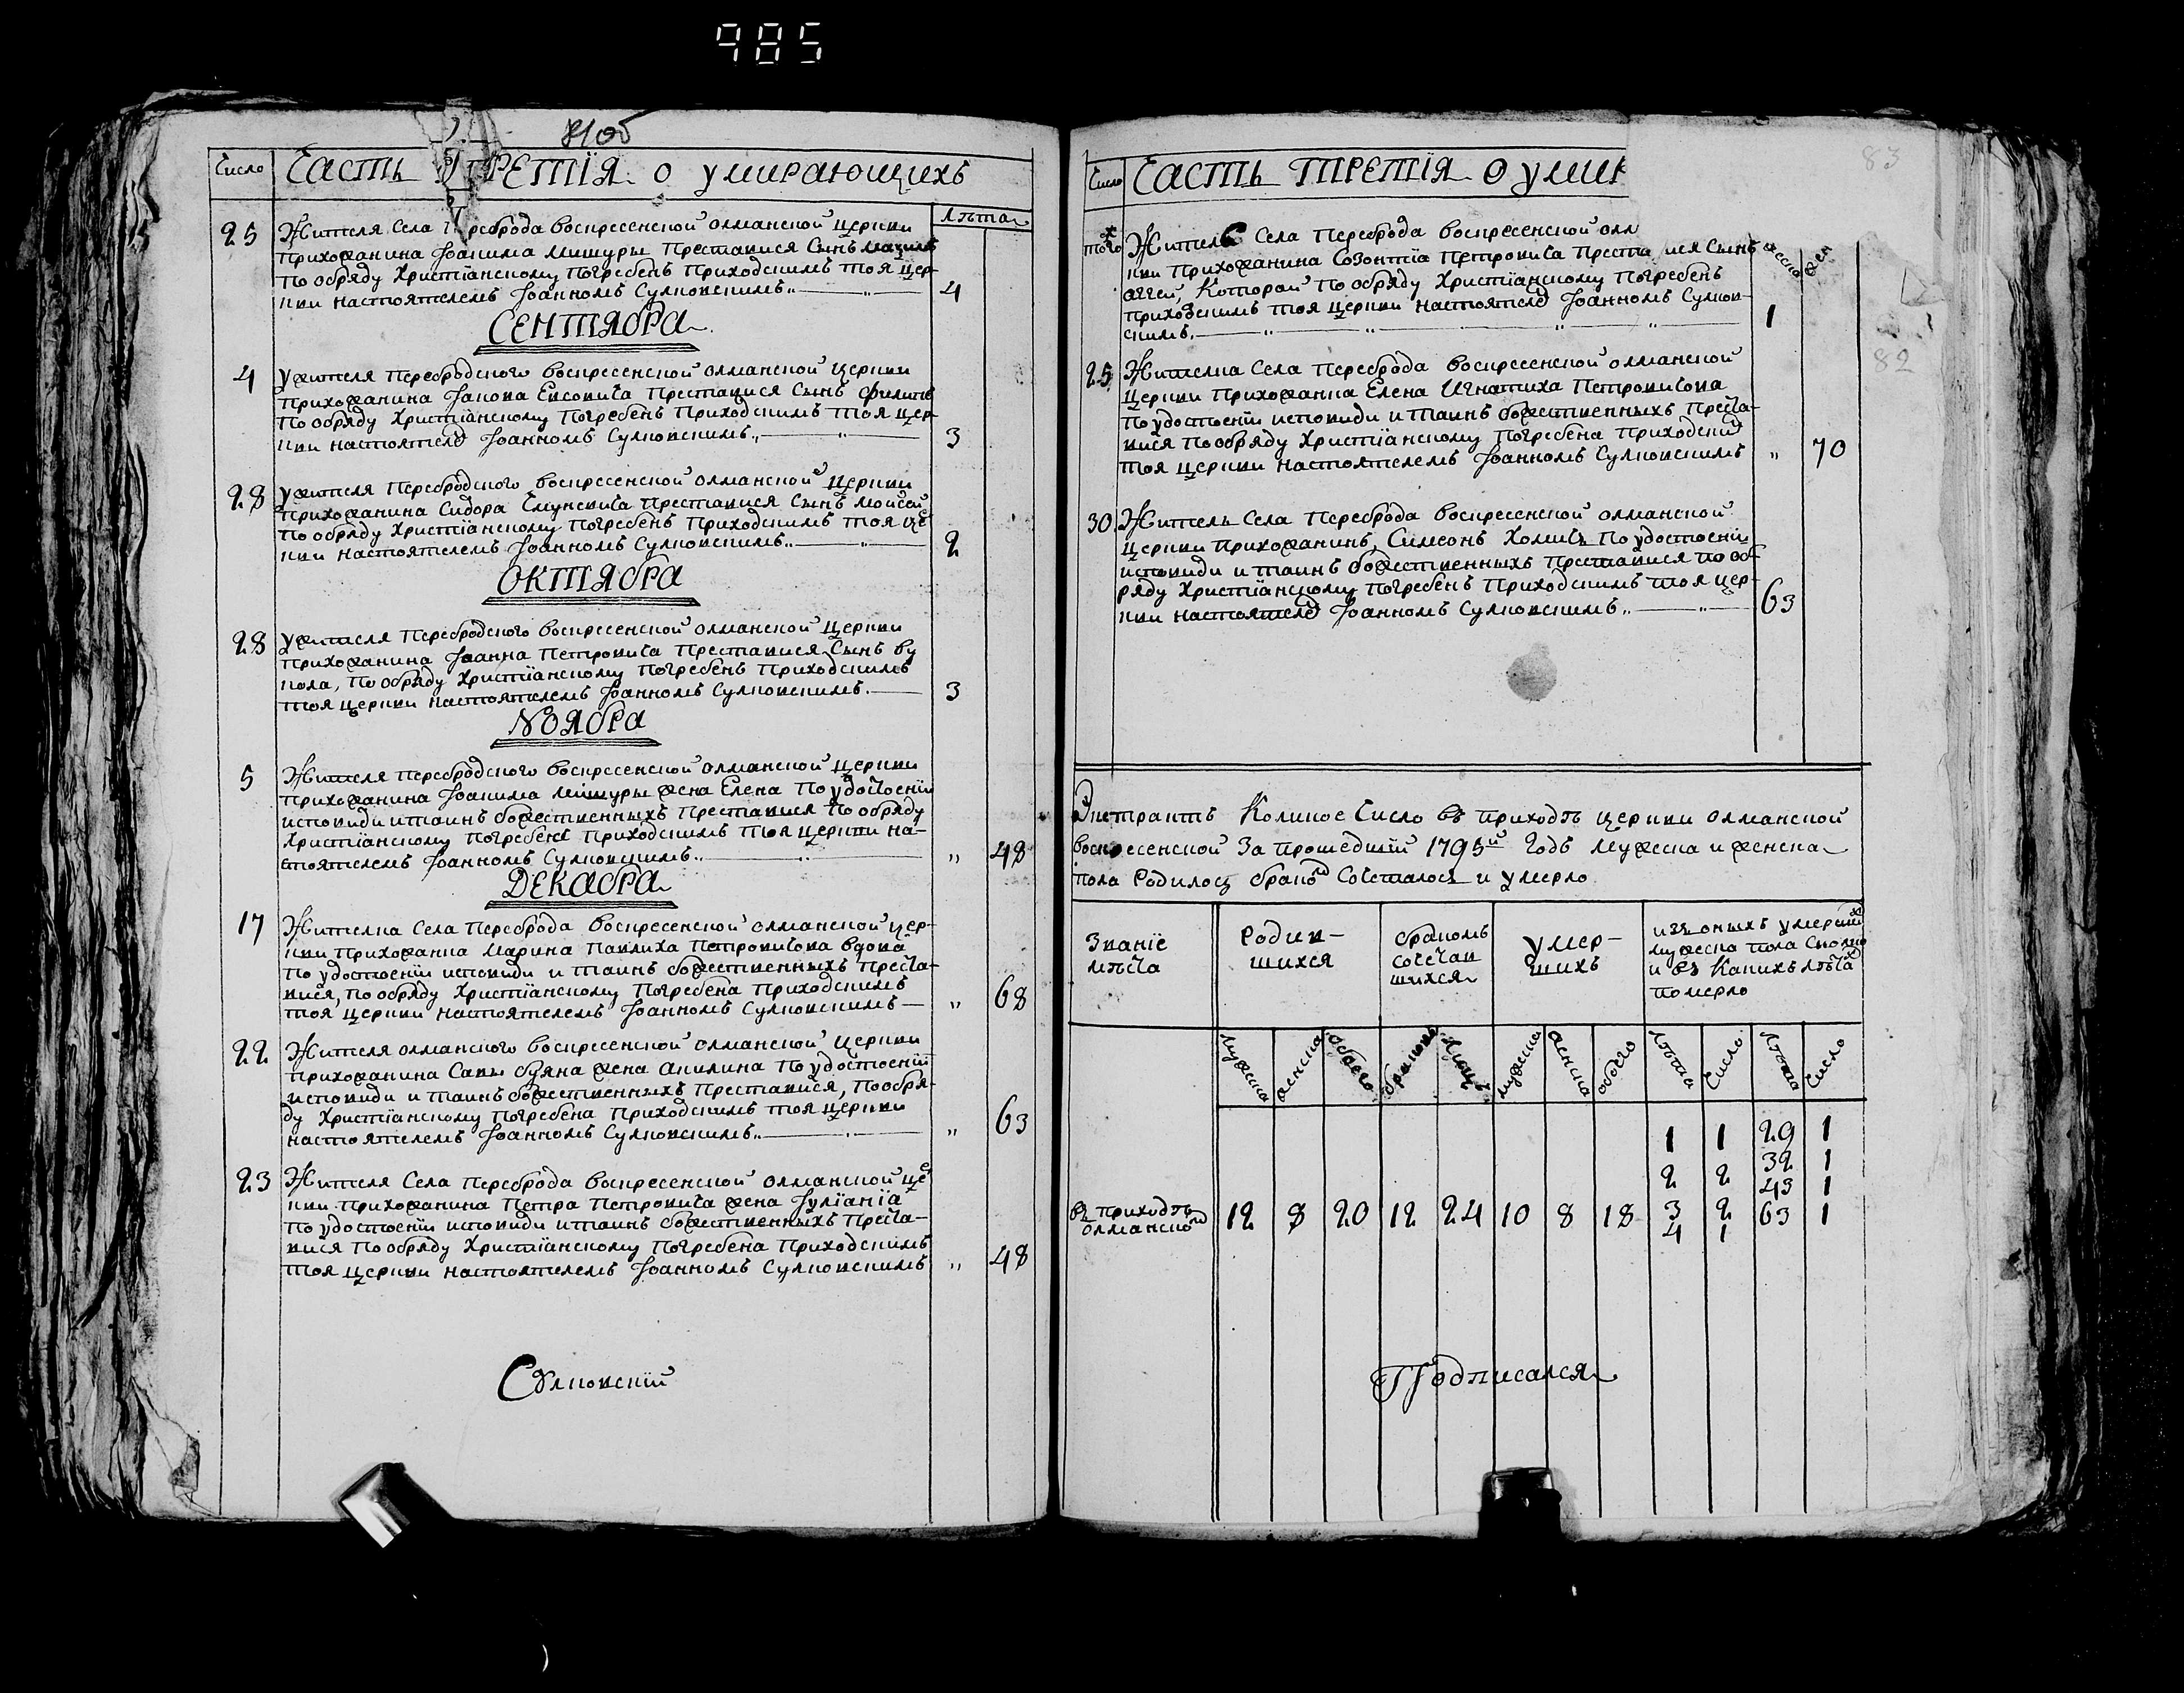 985
81об
Число Часть Третїя о умирающихъ
Лѣта
25 Жителя Села Переброда Воскресенской Олманской церкви
Прихожанина Іоакима Мишуры Преставися Сынъ
По обряду Христїанскому Погребенъ Приходскимъ тоя цер-
кви настоятелемъ Іоанномъ Сулковскимъ 4
Сентября
4 Жителя Перебродского Воскресенской Олманской Церкви
Прихожанина Іакова Преставися Сынъ Филипъ
По обряду Христїанскому Погребенъ Приходскимъ тоя цер
кви настоятеле Іоанномъ Сулковскимъ 3
28 Жителя Перебродского Воскресенской Олманской Церкви
Прихожанина Сидора Преставися Сынъ Моисей
По обряду Христїанскому Погребенъ Приходскимъ тоя це
кви настоятелемъ Іоанномъ Сулковскимъ 2
Октября
28 Жителя Перебродского Воскресенской Олманской Церкви
Прихожанина Іоанна Петровича Преставися Сынъ Ву
кола, По обряду Христїанскому Погребенъ Приходскимъ
тоя Церкви настоятелемъ Іоанномъ Сулковскимъ. 3
Ноября
5 Жителя Перебродского Воскресенской Олманской Церкви
Прихожанина Іоакима Мишуры жена Елена По удостоенїи
исповиди и таинъ божественныхъ Преставися По обряду
Христїанскому Погребена Приходскимъ тоя Церкви на-
стоятелемъ Іоанномъ Сулковскимъ „ 48
Декабря
17 Жителка Села Переброда Воскресенской Олманской цер-
кви Прихожанка Марина Павлиха Петровичова вдова
По удостоенїи исповиди и таинъ божественныхъ Преста-
вися, По обряду Христїанскому Погребена Приходскимъ
тоя Церкви настоятелемъ Іоанномъ Сулковскимъ „ 68
22 Жителя Олманского Воскресенской Олманской Церкви
Прихожанина Савы жена Акилина По удостоенїи
исповиди и таинъ божественныхъ Преставися, По обря-
ду Христїанскому Погребена Приходскимъ тоя Церкви
настоятелемъ Іоанномъ Сулковскимъ „ 63
23 Жителя Села Переброда Воскресенской Олманской це
кви Прихожанина Петра Петровича жена Іулїанїа
По удостоенїи исповиди и таинъ божественныхъ Преста-
вися По обряду Христїанскому Погребена Приходскимъ
тоя Церкви настоятелемъ Іоанномъ Сулковскимъ „ 48
Сулковскїй
83
82
Число Часть Третїя о умир
того Жителя Села Переброда Воскресенской Олм
кви Прихожанина Созонтїа Петровича Преста вися Сынъ
Аггей, Которой По обряду Христїанскому Погребенъ
Приходскимъ тоя Церкви настоятеле Іоанномъ Сулков-
скимъ. 1
25 Жителка Села Переброда Воскресенской Олманской
Церкви Прихожанка Елена Игнатиха Петровичова
По удостоенїи исповиди и таинъ божественныхъ Преста-
вися По обряду Христїанскому Погребена Приходски
тоя Церкви настоятелемъ Іоанномъ Сулковскимъ „ 70
30 Житель Села Переброда Воскресенской Олманской
Церкви Прихожанинъ, Симеонъ Хомичъ По удостоенїи
исповиди и таинъ божественныхъ Преставися По об-
ряду Христїанскому Погребенъ Приходскимъ тоя цер-
кви настоятеле Іоанномъ Сулковскимъ 63
Экстрактъ Коликое Число въ Приходѣ церкви Олманской
Воскресенской За Прошедшїй 1795й Годъ мужеска и женска
Пола Родилось брако Сочеталось и умерло
Званїе
мѣста
Родив-
шихся
бракомъ
сочетав
шихся
Умер-
шихъ
изъ оныхъ умерши
мужеска пола Сколко
и въ Какихъ лѣта
Померло
мужеска женска обоего браковъ лицъ мужеска женска обоего Лѣта Число Лѣта Число
1 1 29 1
2 2 32 1
43 1
въ приходѣ 12 8 20 12 24 10 8 18 3 2 63 1
Олманско 4 1
Подписался